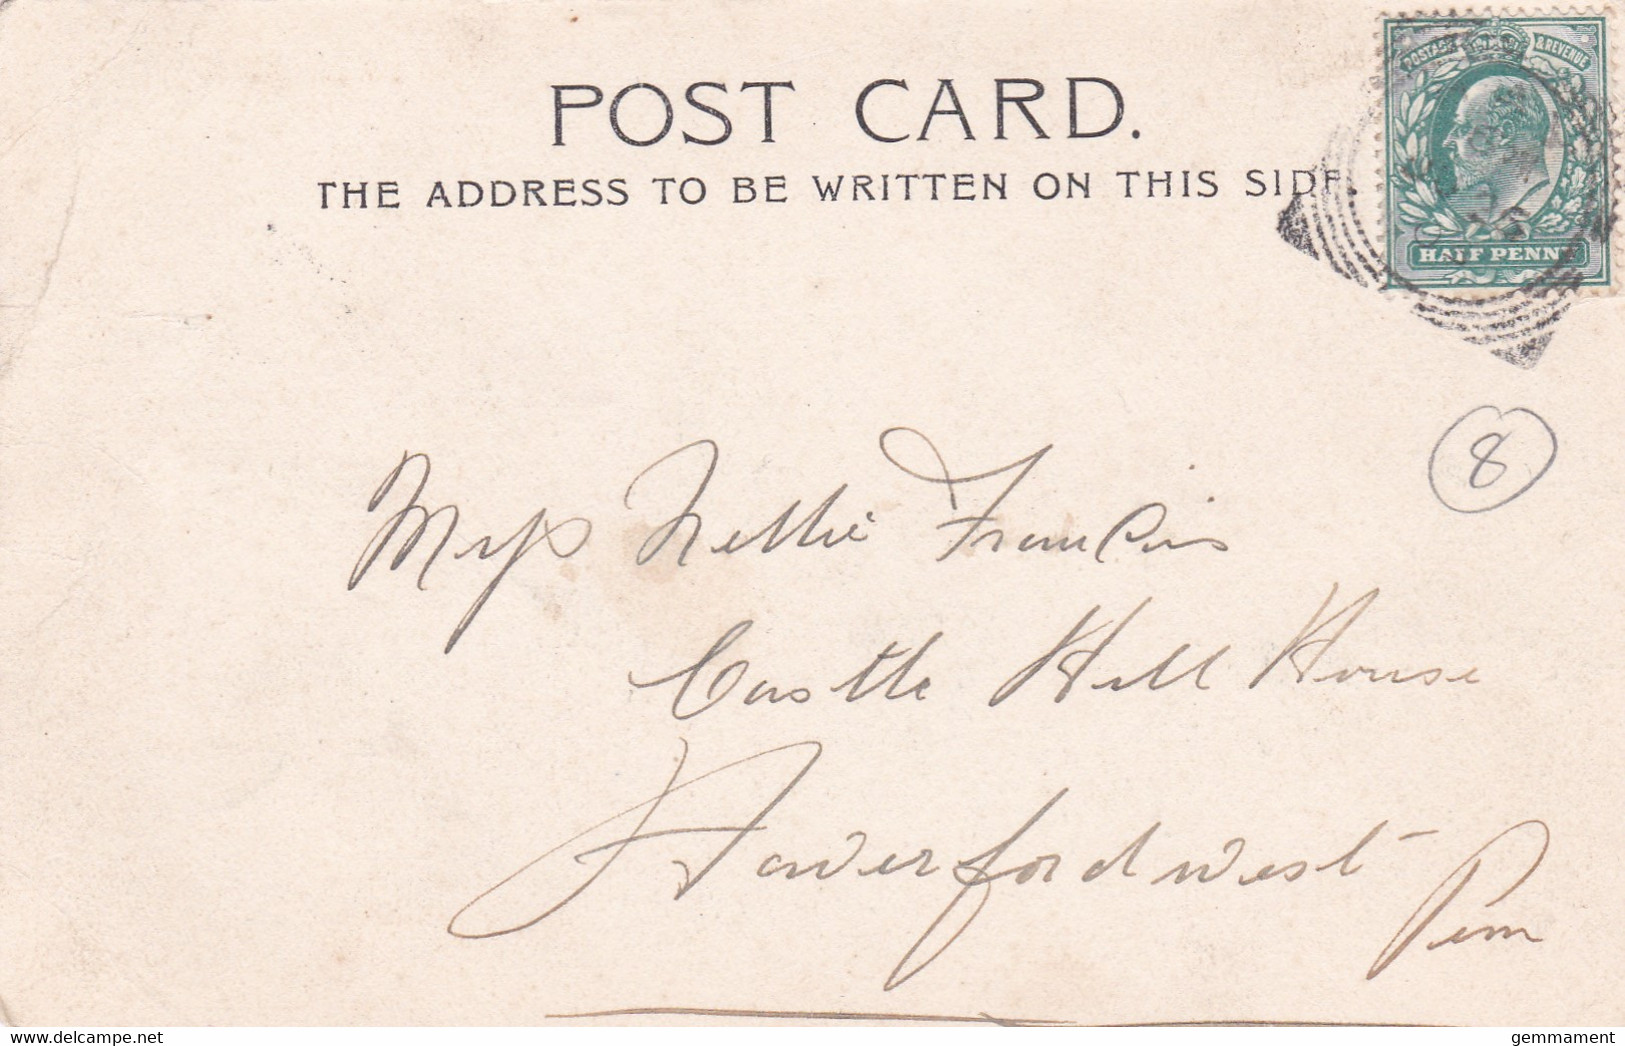 POST CARD.
THE ADDRESS TO BE WRITTEN ON THIS SIDE.
POSTAGE & REVENUE
HALF PENNY
8
Miss Nellie Francis
Castle Hill House
Haverfordwest
Pem
gemmament
www.delcampe.net